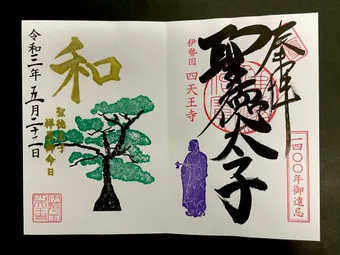 奉拝
聖徳太子
伊勢国 四天王寺
一四〇〇年御遠忌
和
聖徳太子
令和三年 五月二十二日